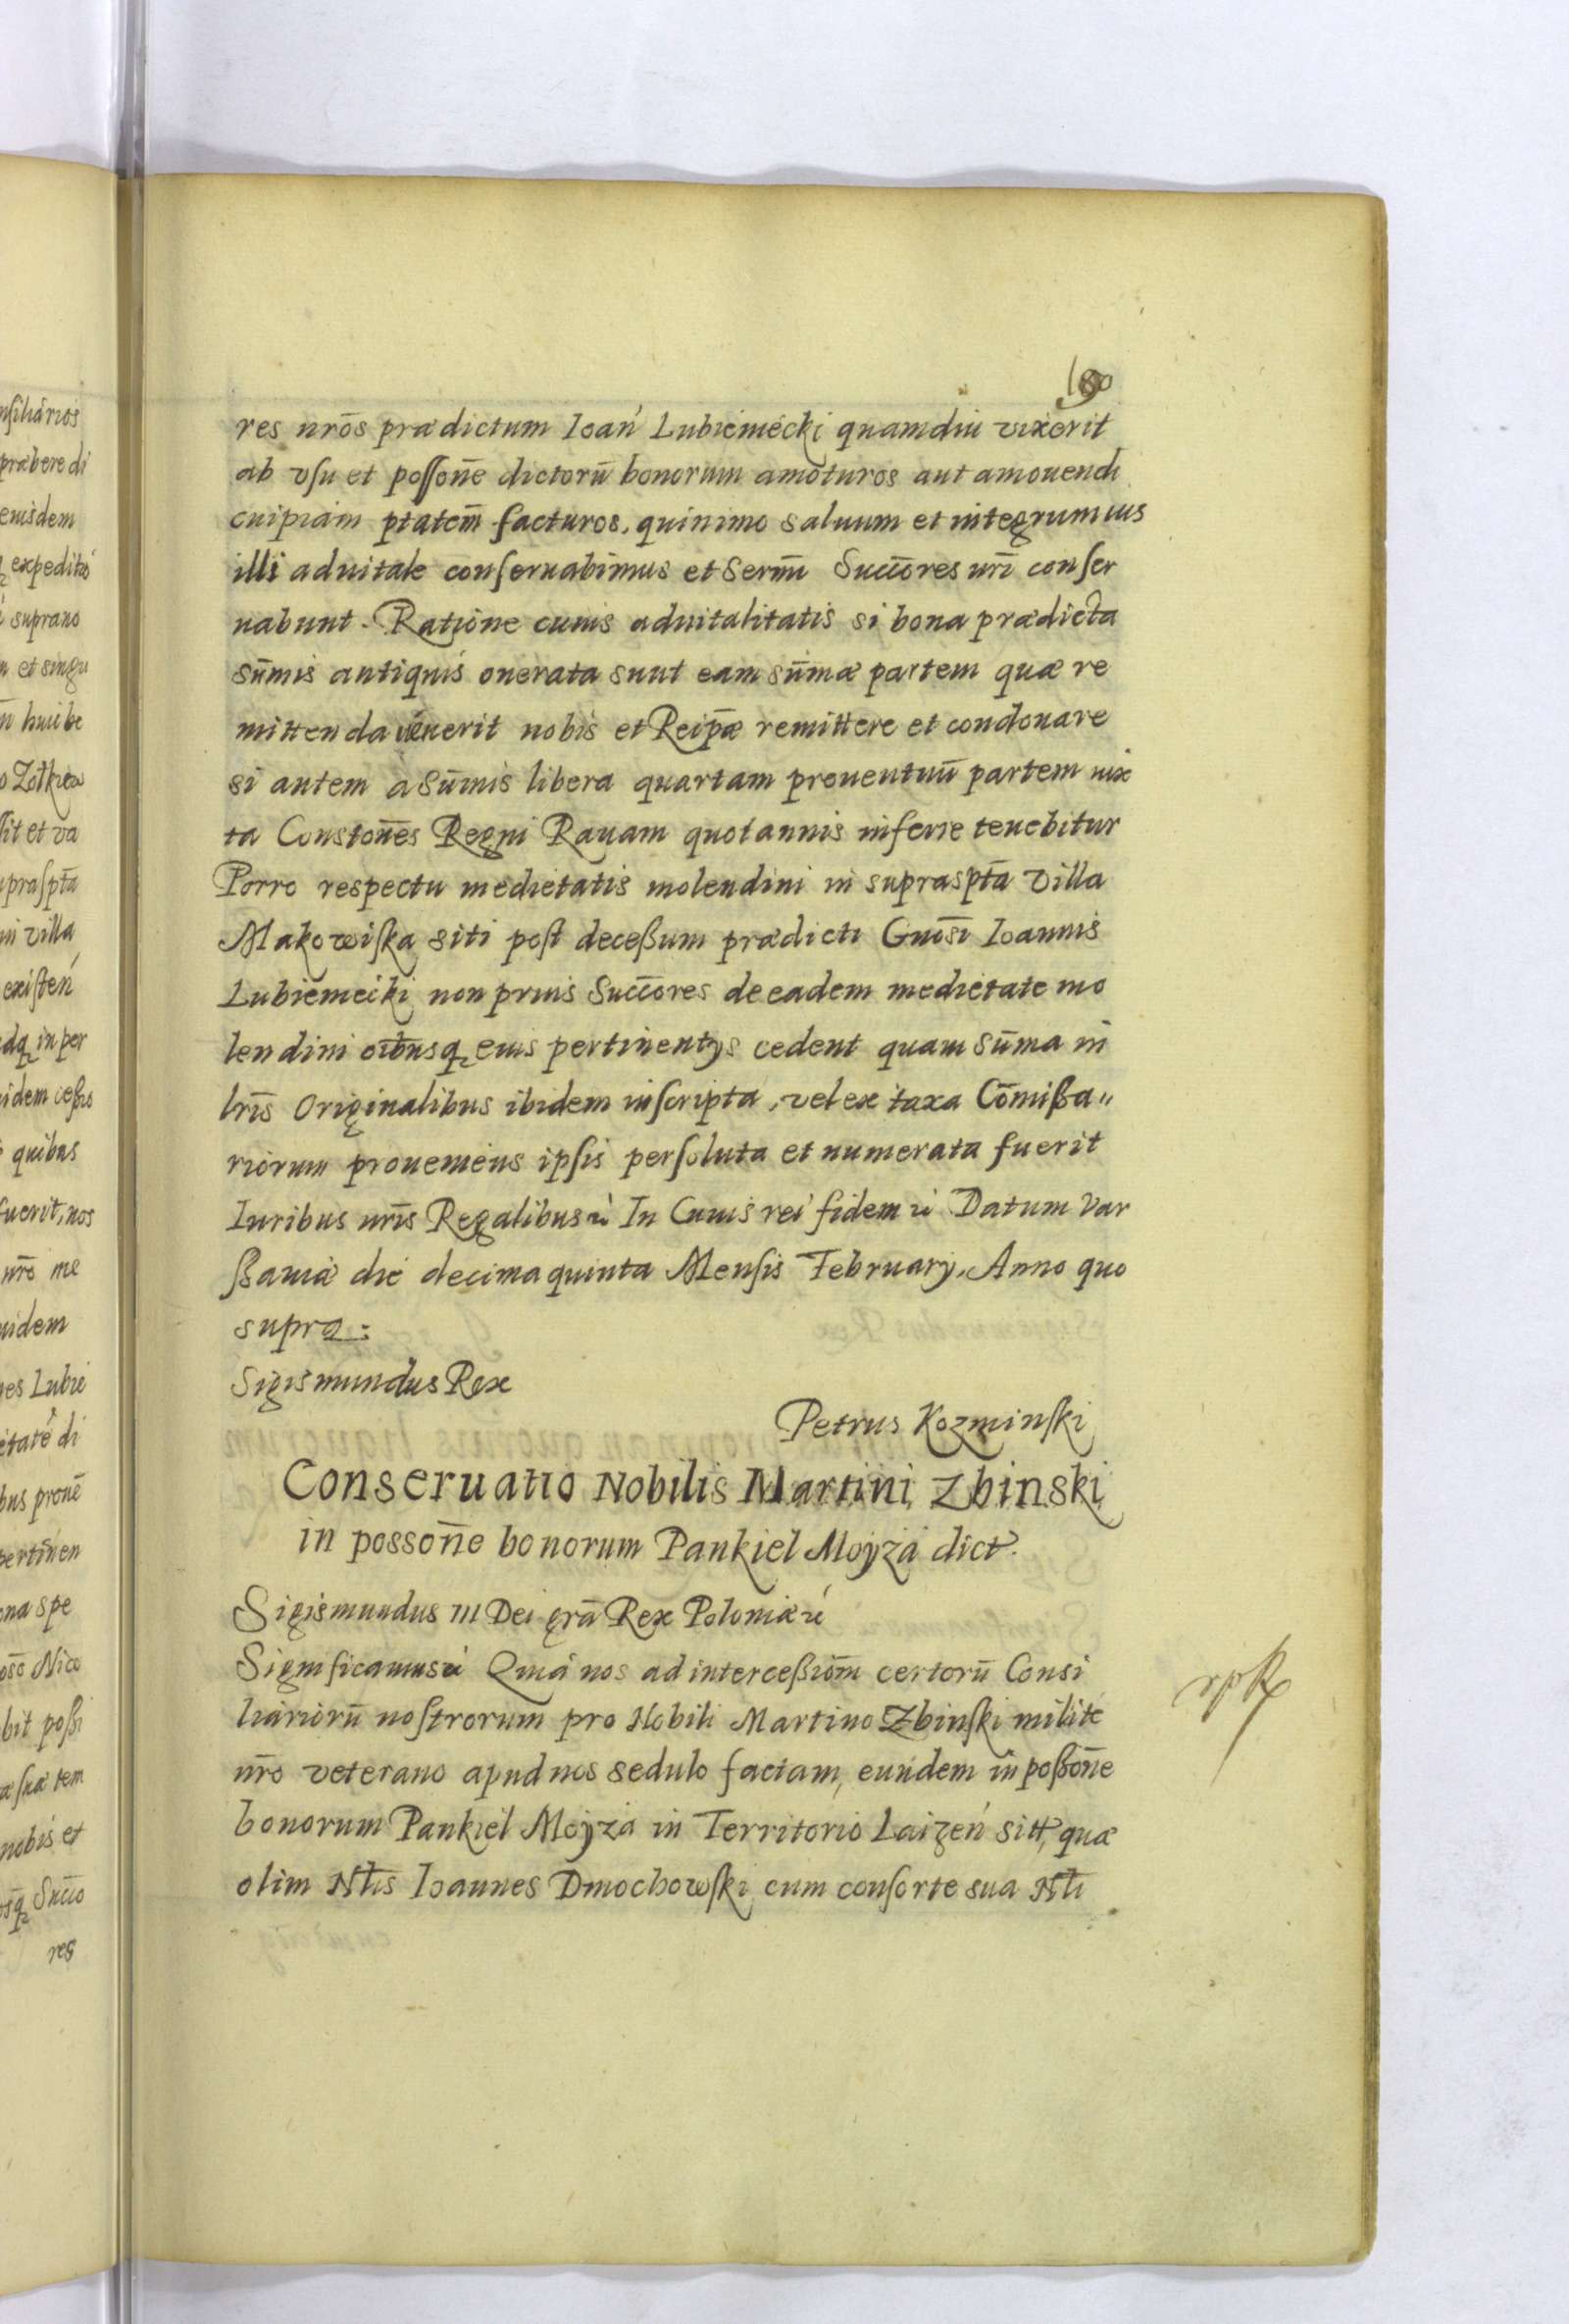 190
res nrōs prædictum Ioań Lubiemecki quamdiu vixerit
ab vſu et poſſoñe dictorū bonorum amoturos aut amouendi
cuipiam ptatem̄ facturos, quinimo saluum et integrum ius
illi aduitale conſeruabimus et Serm̄i Succ̄ores nr̄i conſer
uabunt. Ratione cuius aduitalitatis si bona prædicta
sum̄is antiquis onerata sunt eam sum̄æ partem quæ re
mittenda venerit nobis et Reip̄æ remittere et condonare
si autem a Sum̄is libera quartam prouentuū partem iux
ta Constoñes Regni Rauam quotannis inferre tenebitur
Porro respectu medietatis molendini in supraspt̄a villa
Makowiſka siti poſt deceßum prædicti Gnōsi Ioannis
Lubiemecki non prius Succ̄ores de eadem medietate mo
lendini oībusq eius pertinentÿs cedent quam sum̄a in
lrīs Originalibus ibidem inſcripta, vel ex taxa Com̄ißa"
riorum proueniens ipſis perſoluta et numerata fuerit
Iuribus nrīs Regalibus ꝛć In Cuius rei fidem ꝛć Datum Var
ßauiæ die decima quinta Menſis Februarÿ, Anno quo
supra:
Sigismundus Rex
Petrus Kozminſki
Conseruatio Nobilis Martini Zbinski
in possoñe bonorum Pankiel Moÿza dict
Sigismundus III Dei grā Rex Poloniæ ꝛć
Significamus ꝛć Quia nos ad interceßiom̄ certorū Consi
liariorū noſtrorum pro Nobili Martino Zbinſki milite
nr̄o veterano apud nos sedulo factam, eundem in poßoñe
bonorum Pankiel Moÿza in Territorio Laizeń sitt, quæ
olim Nlīs Ioannes Dmochowſki cum conſorte sua Nlī
nſiliarios
præbere di
eiusdem
expeditio
suprano
et singu
huibe
o Zołkiew
ſit et va
upraſpt̄a
in villa
exiſteń
dq in per
idem ceßio
quibus
fuerit, nos
nr̄o me
uidem
nes Lubie
etatē di
bus prouē
pertinen
ona spe
osc̄ Nico
bit poßi
æ ſuæ tem
nobis et
osq Succ̄o
res